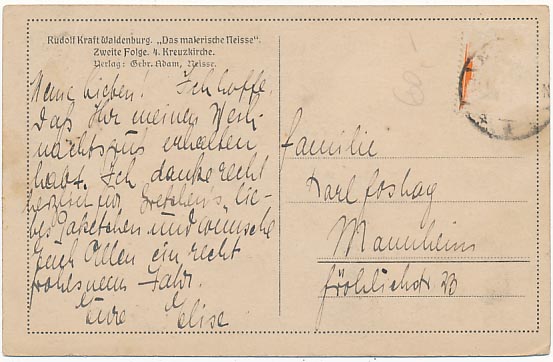 Rudolf Kraft Waldenburg. „Das malerische Neisse".
Zweite Folge. 4. Kreuzkirche.
Verlag: Gebr. Adam, Neisse.
60.-
Meine Lieben! Ich hoffe
das Ihr meinen Weih
nachtsgruß erhalten
habt. Ich danke recht
herzlich für Gretchens lie-
bes Paketchen und wünsche
Euch Allen ein recht
frohes neues Jahr.
Eure Elise
Familie
Karl Foshag
Mannheim
Fröhlichstr 23